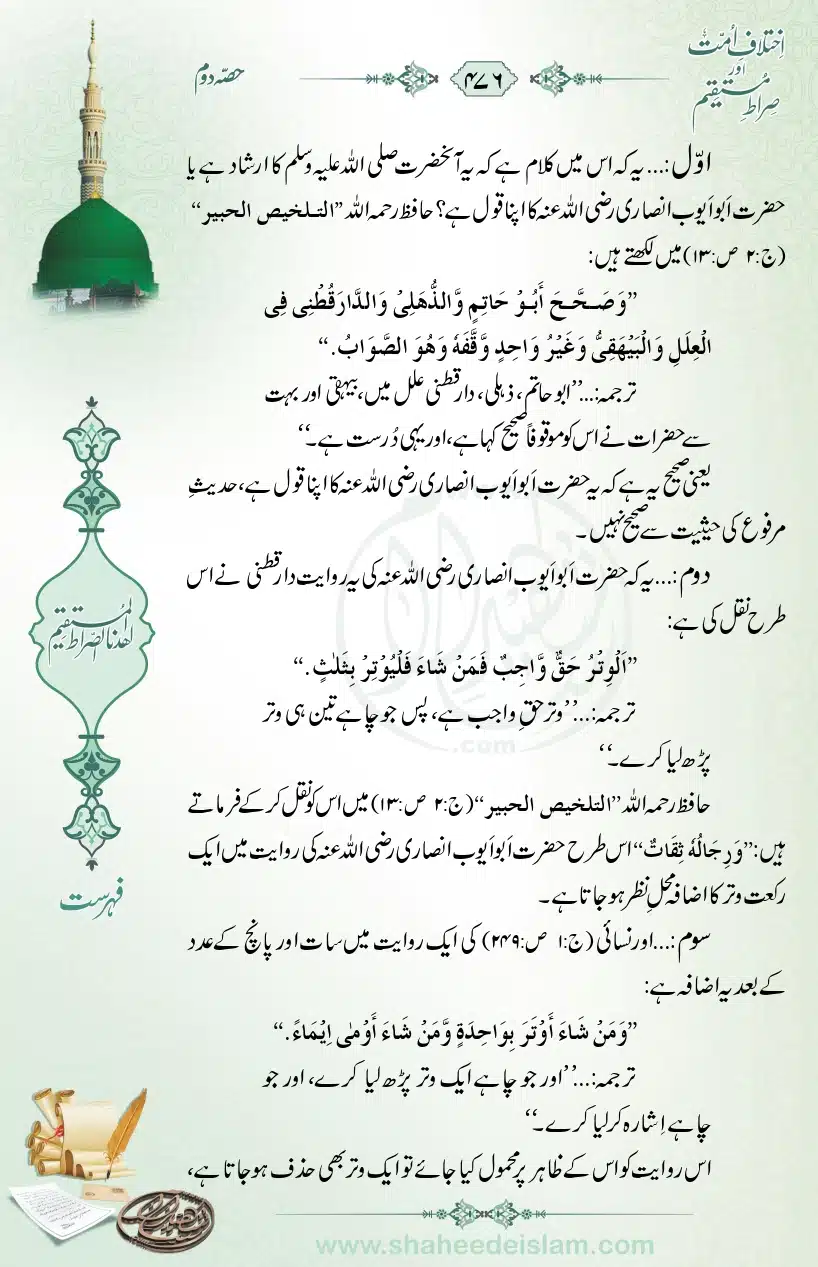 اِختلافِ اُمّت
اور
صراطِ مُستقیم
۴۷۶
حصّہ دوم
اوّل:... یہ کہ اس میں کلام ہے کہ یہ آنحضرت صلی اللہ علیہ وسلم کا ارشاد ہے یا
حضرت اَبو اَیوب انصاری رضی اللہ عنہ کا اپنا قول ہے؟ حافظ رحمہ اللہ ”التلخیص الحبیر“
(ج:۲ ص:۱۳) میں لکھتے ہیں:
”وَصَحَّحَ أَبُوْ حَاتِمٍ وَّالذُّهَلِیْ وَالدَّارَقُطْنِی فِی
الْعِلَلِ وَالْبَیْهَقِیُّ وَغَیْرُ وَاحِدٍ وَّقَّفَهٗ وَهُوَ الصَّوَابُ.“
ترجمہ:...’’ابو حاتم، ذہلی، دارقطنی علل میں، بیہقی اور بہت
سے حضرات نے اس کو موقوفاً صحیح کہا ہے، اور یہی دُرست ہے۔‘‘
یعنی صحیح یہ ہے کہ یہ حضرت اَبو اَیوب انصاری رضی اللہ عنہ کا اپنا قول ہے، حدیثِ
مرفوع کی حیثیت سے صحیح نہیں۔
دوم:... یہ کہ حضرت اَبو اَیوب انصاری رضی اللہ عنہ کی یہ روایت دارقطنی نے اس
طرح نقل کی ہے:
”اَلْوِتْرُ حَقٌّ وَّاجِبٌ فَمَنْ شَاءَ فَلْیُوْتِرْ بِثَلٰثٍ.“
ترجمہ:...’’وتر حقِ واجب ہے، پس جو چاہے تین ہی وتر
پڑھ لیا کرے۔‘‘
حافظ رحمہ اللہ ”التلخیص الحبیر“ (ج:۲ ص:۱۳) میں اس کو نقل کرکے فرماتے
ہیں: ”وَرِجَالُهٗ ثِقَاتٌ“ اس طرح حضرت اَبو اَیوب انصاری رضی اللہ عنہ کی روایت میں ایک
رکعت وتر کا اضافہ محلِ نظر ہوجاتا ہے۔
سوم:...اور نسائی (ج:۱ ص:۲۴۹) کی ایک روایت میں سات اور پانچ کے عدد
کے بعد یہ اضافہ ہے:
”وَمَنْ شَاءَ أَوْتَرَ بِوَاحِدَةٍ وَّمَنْ شَاءَ أَوْمٰی إِیْمَاءً.“
ترجمہ:...’’اور جو چاہے ایک وتر پڑھ لیا کرے، اور جو
چاہے اِشارہ کرلیا کرے۔‘‘
اس روایت کو اس کے ظاہر پر محمول کیا جائے تو ایک وتر بھی حذف ہوجاتا ہے،
اهدنا الصراط المستقیم
فہرست
www.shaheedeislam.com